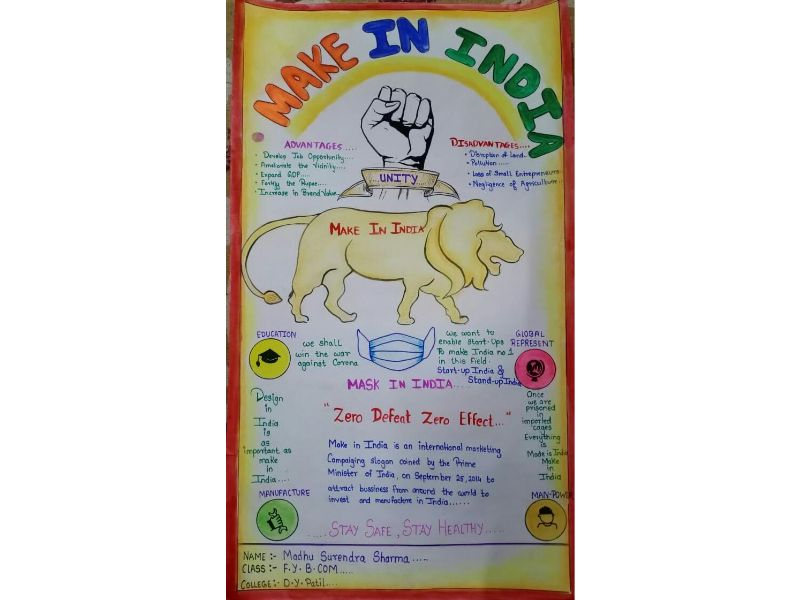 MAKE IN INDIA
ADVANTAGES....
• Develop Job Opportunity....
• Ameliorate the Vicinity....
• Expand GDP....
• Fortify the Rupee....
• Increase in Brand Value..
DISADVANTAGES....
• Disruption of Land..
• Pollution ....
• Loss of Small Entrepreneurs
• Negligence of Agriculture..
UNITY
MAKE IN INDIA
EDUCATION
we shall
win the war
against Corona
we want to
enable Start-Ups
To make India no 1
in this field.
Start-up India &
Stand-up India
GLOBAL
REPRESENT
MASK IN INDIA....
Design
in
India
is
as
important as
make
in
India....
"Zero Defeat Zero Effect..."
Make in India is an international marketing
Campaiging slogan coined by the Prime
Minister of India, on September 25, 2014 to
attract bussiness from around the world to
invest and manufacture in India......
Once
we are
prisoned
in
imported
cages
Everything
is
Made is India
Make
in
India
MANUFACTURE
MAN-POWER
.....STAY SAFE, STAY HEALTHY.....
NAME :- Madhu Surendra Sharma.....
CLASS :- F.Y.B.COM.....
COLLEGE:- D.Y.Patil....